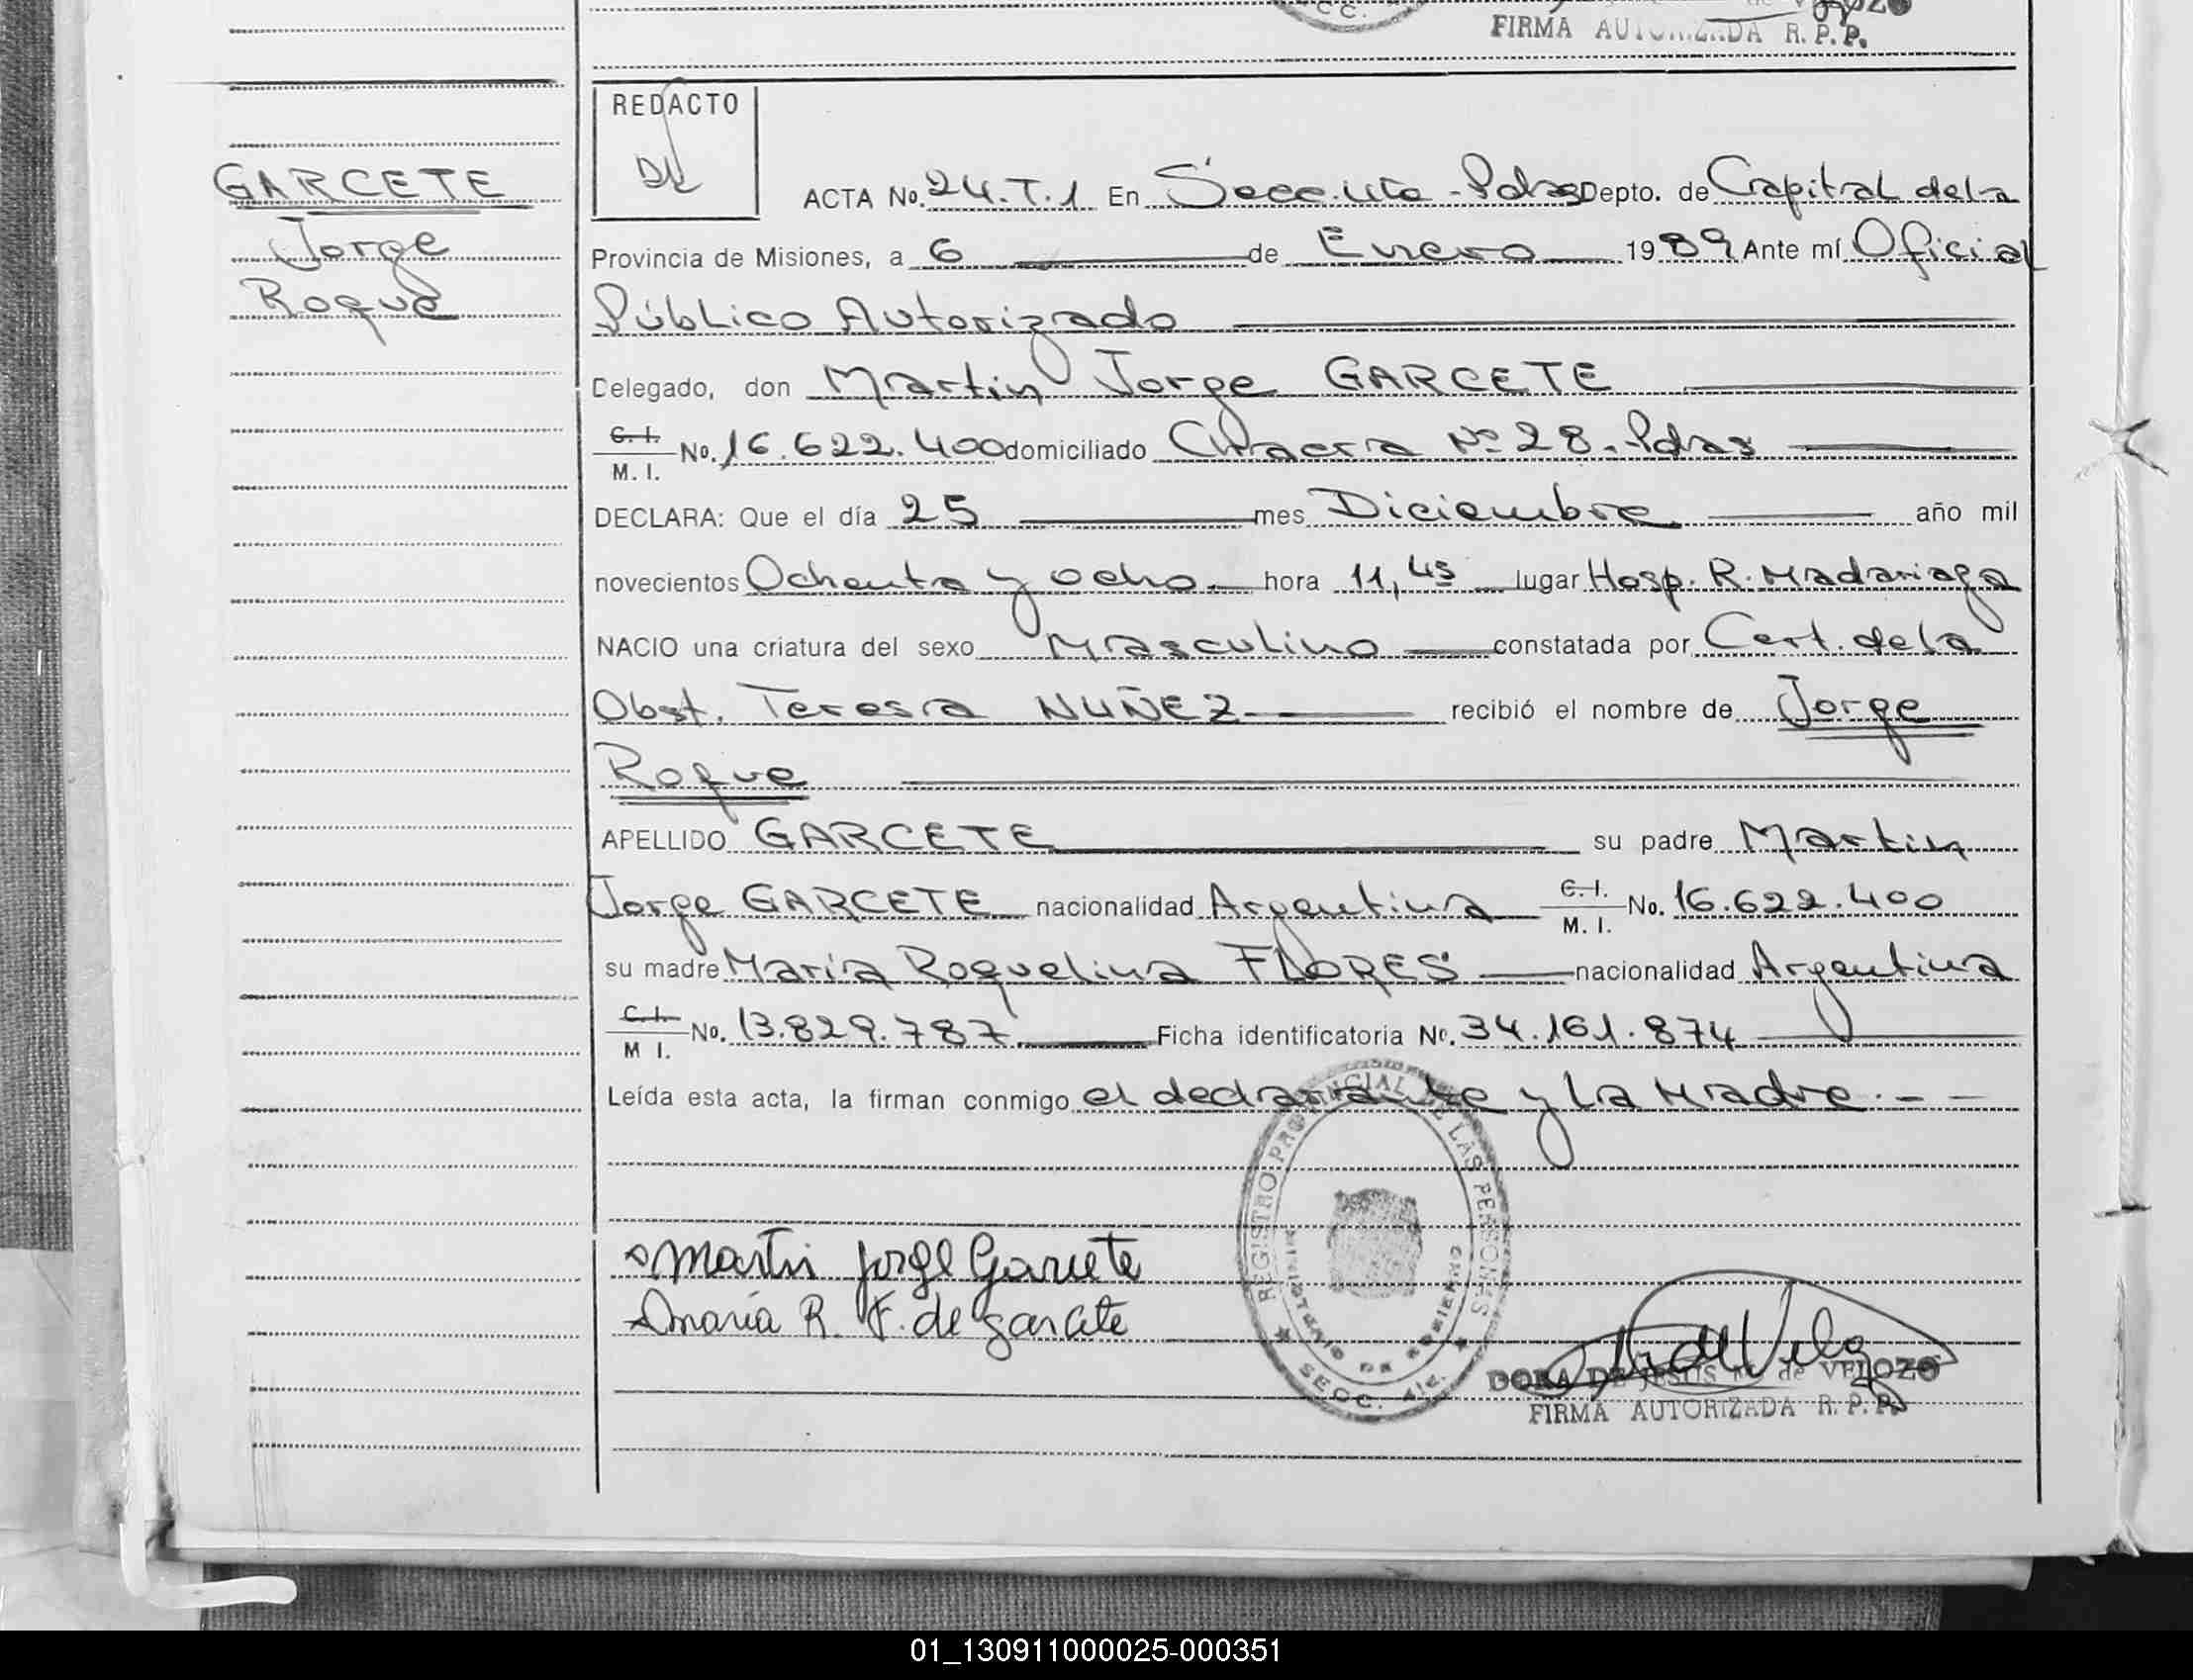 FIRMA AUTORIZADA R. P. P.
REDACTO
GARCETE
Jorge
Roque
ACTA No. 24.T.1 En Secc. 4ta - Pdas Depto. de Capital de la
Provincia de Misiones, a 6 de Enero 1989 Ante mí Oficial
Público Autorizado
Delegado, don Martin Jorge GARCETE
C. I.
M. I. No. 16.622.400 domiciliado Chacra Nº 28 - Pdas
DECLARA: Que el día 25 mes Diciembre año mil
novecientos Ochenta y ocho hora 11,45 lugar Hosp. R. Madariaga
NACIO una criatura del sexo Masculino constatada por Cert. de la
Obst. Teresa NUÑEZ recibió el nombre de Jorge
Roque
APELLIDO GARCETE su padre Martin
Jorge GARCETE nacionalidad Argentina C. I. M. I. No. 16.622.400
su madre María Roquelina FLORES nacionalidad Argentina
C. I.
M I. No. 13.829.787 Ficha identificatoria No. 34.161.874
Leída esta acta, la firman conmigo el declarante y la Madre. - -
REGISTRO PROVINCIAL DE LAS PERSONAS
MINISTERIO DE GOBIERNO
SECC. 4ta.
Martin Jorge Garcete
Maria R. F. de garcete
DORA DE JESUS de VELOZO
FIRMA AUTORIZADA R. P. P.
01_130911000025-000351